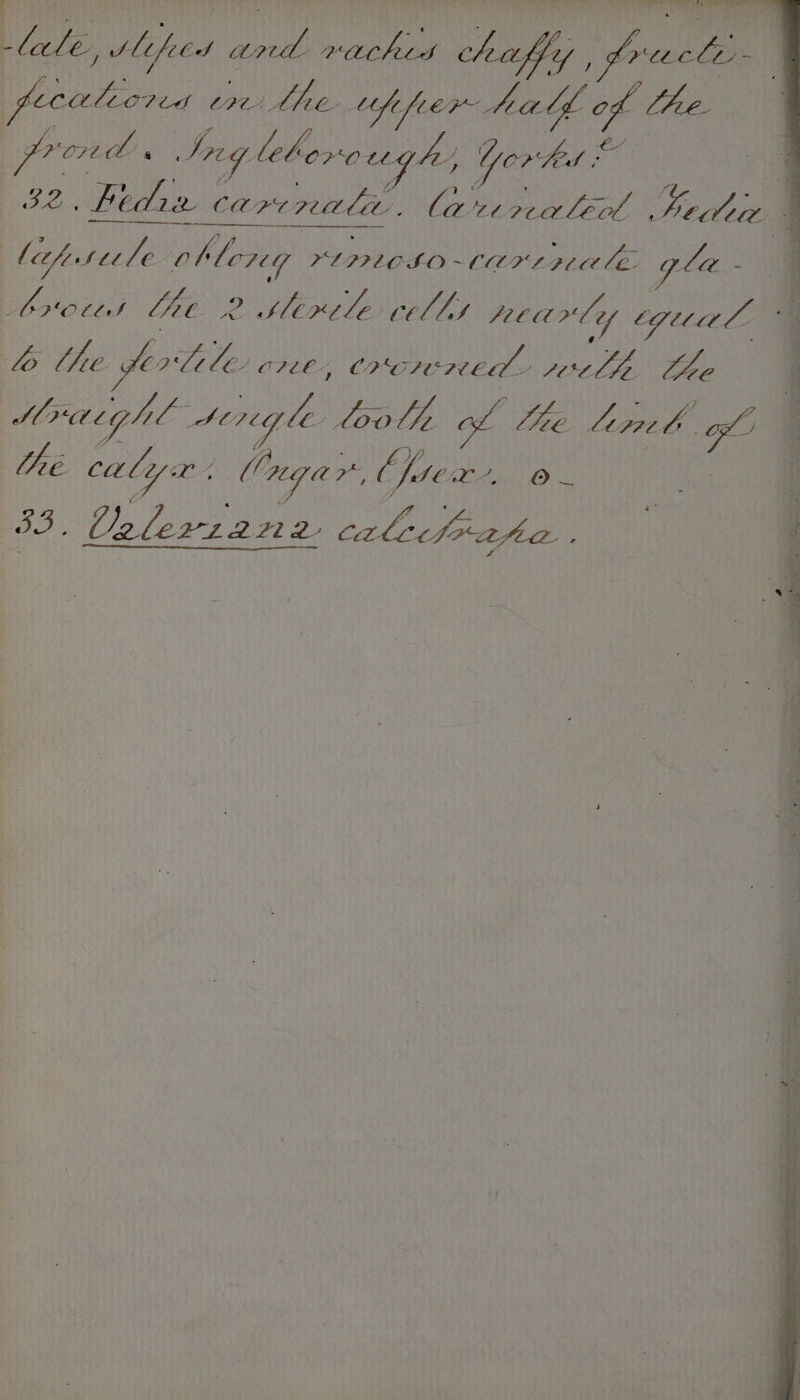 -late, stipes and rachis chaffy, fructi-
fications in the upper half of the
frond. Ingleborough, Yorks:^e
32. Fedia carinata. Carinated Fedia
Capsule oblong rimoso-carinate gla-
-brous the 2 sterile cells nearly equal
to the fertile one, crowned with the
straight single tooth of the limb of
the calyx. Ongar, Essex. ⊙_
33. Valeriana calcitrapa.